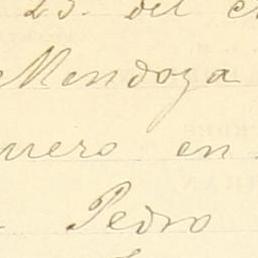 23. del
Mendoza
uero en
Pedro